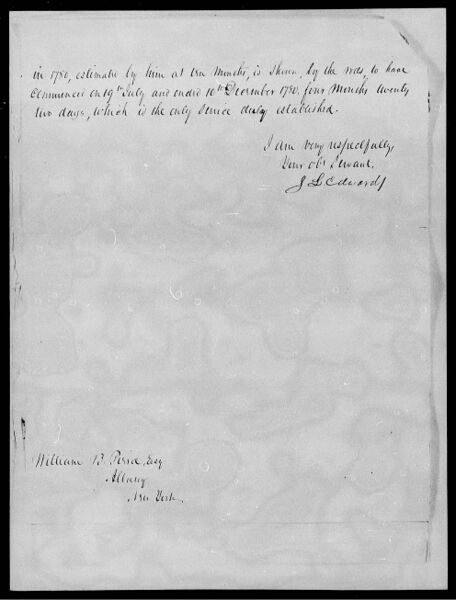 in 1780, estimated by him at ten Months, is shown, by the rolls, to have
Commenced on 19th July and ended 10th December 1780. four Months twenty
two days, which is the only Service duly established.
I am very respectfully,
Your obt Servant.
J L Edwards
William B. Esq
Albany
New York.